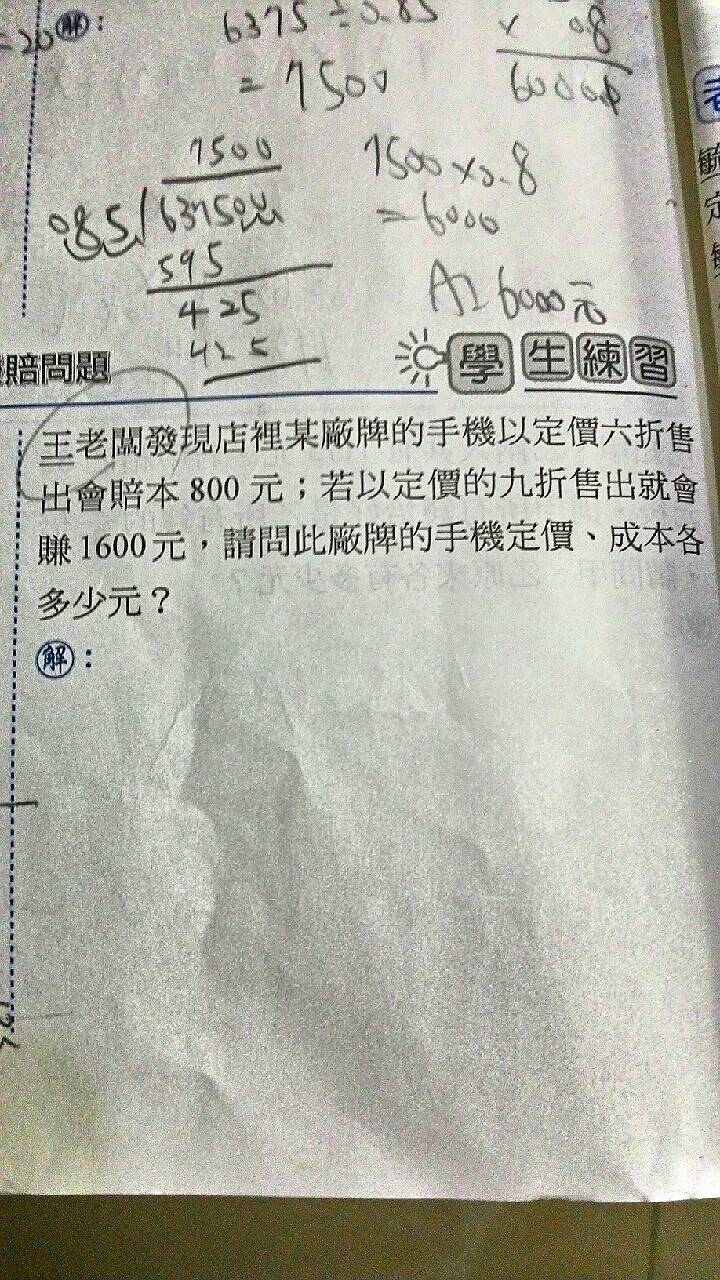 =20 解：
6375÷0.85
=7500
× 0.8
6000.0
7500
0.85 637500
595
425
425
7500×0.8
=6000
A：6000元
賠問題
學生練習
王老闆發現店裡某廠牌的手機以定價六折售
出會賠本 800 元；若以定價的九折售出就會
賺 1600 元，請問此廠牌的手機定價、成本各
多少元？
解：